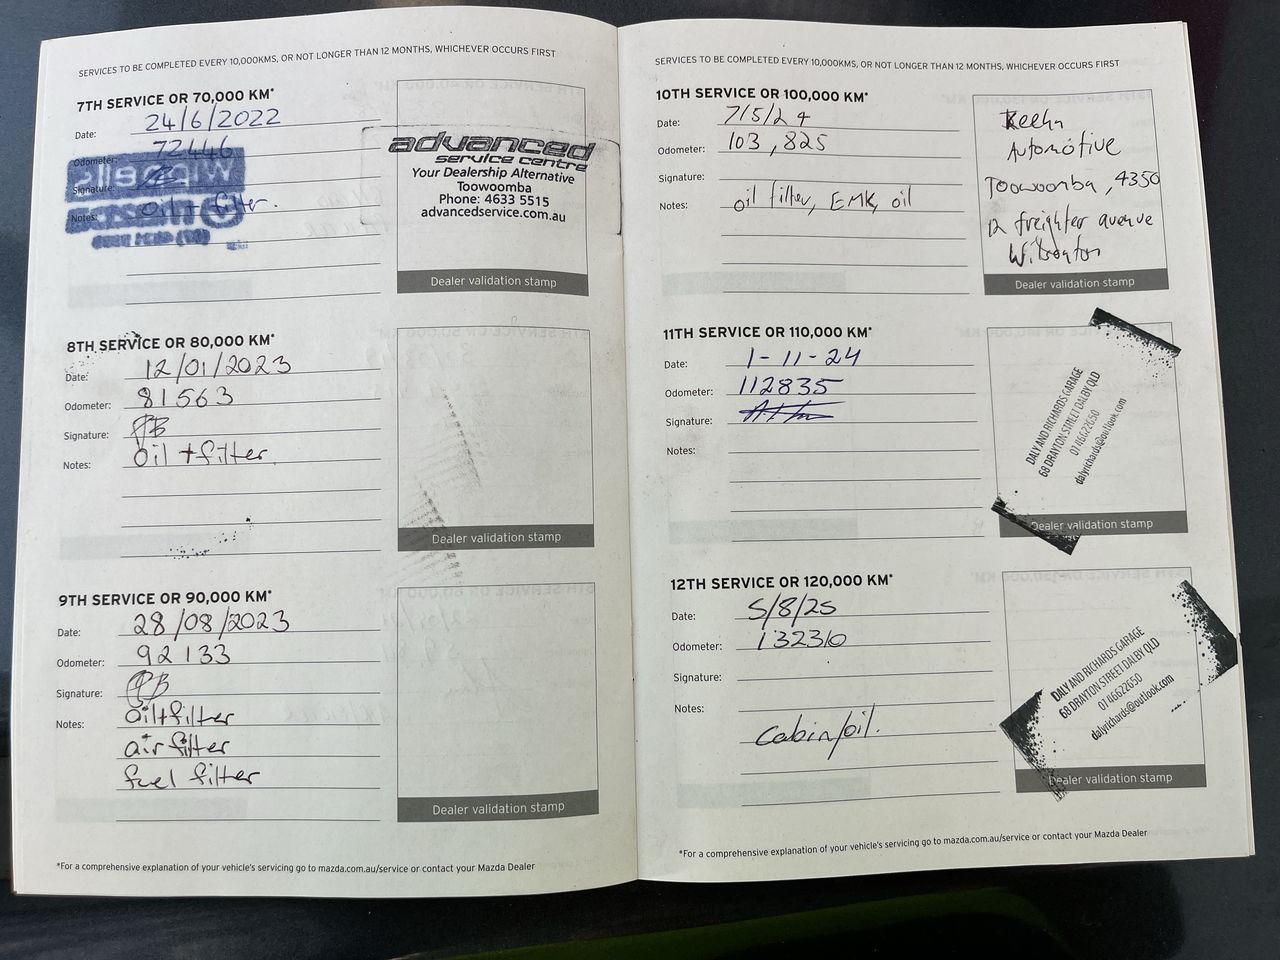 SERVICES TO BE COMPLETED EVERY 10,000KMS, OR NOT LONGER THAN 12 MONTHS, WHICHEVER OCCURS FIRST
7TH SERVICE OR 70,000 KM*
Date: 24/6/2022
Odometer: 72446
Signature:
Notes: oil + filter.
advanced
service centre
Your Dealership Alternative
Toowoomba
Phone: 4633 5515
advancedservice.com.au
Dealer validation stamp
8TH SERVICE OR 80,000 KM*
Date: 12/01/2023
Odometer: 81563
Signature:
Notes: oil + filter
Dealer validation stamp
9TH SERVICE OR 90,000 KM*
Date: 28/08/2023
Odometer: 92133
Signature:
Notes: oil+filter
air filter
fuel filter
Dealer validation stamp
*For a comprehensive explanation of your vehicle's servicing go to mazda.com.au/service or contact your Mazda Dealer
SERVICES TO BE COMPLETED EVERY 10,000KMS, OR NOT LONGER THAN 12 MONTHS, WHICHEVER OCCURS FIRST
10TH SERVICE OR 100,000 KM*
Date: 7/5/24
Odometer: 103,825
Signature:
Notes: oil filter, EMK, oil
Automotive
Toowoomba, 4350
12 freighter avenue
Wilsonton
Dealer validation stamp
11TH SERVICE OR 110,000 KM*
Date: 1-11-24
Odometer: 112835
Signature:
Notes:
DALY AND RICHARDS GARAGE
68 DRAYTON STREET DALBY QLD
0746622650
dalyrichards@outlook.com
Dealer validation stamp
12TH SERVICE OR 120,000 KM*
Date: 5/8/25
Odometer: 132310
Signature:
Notes:
cabin/oil.
DALY AND RICHARDS GARAGE
68 DRAYTON STREET DALBY QLD
0746622650
dalyrichards@outlook.com
Dealer validation stamp
*For a comprehensive explanation of your vehicle's servicing go to mazda.com.au/service or contact your Mazda Dealer